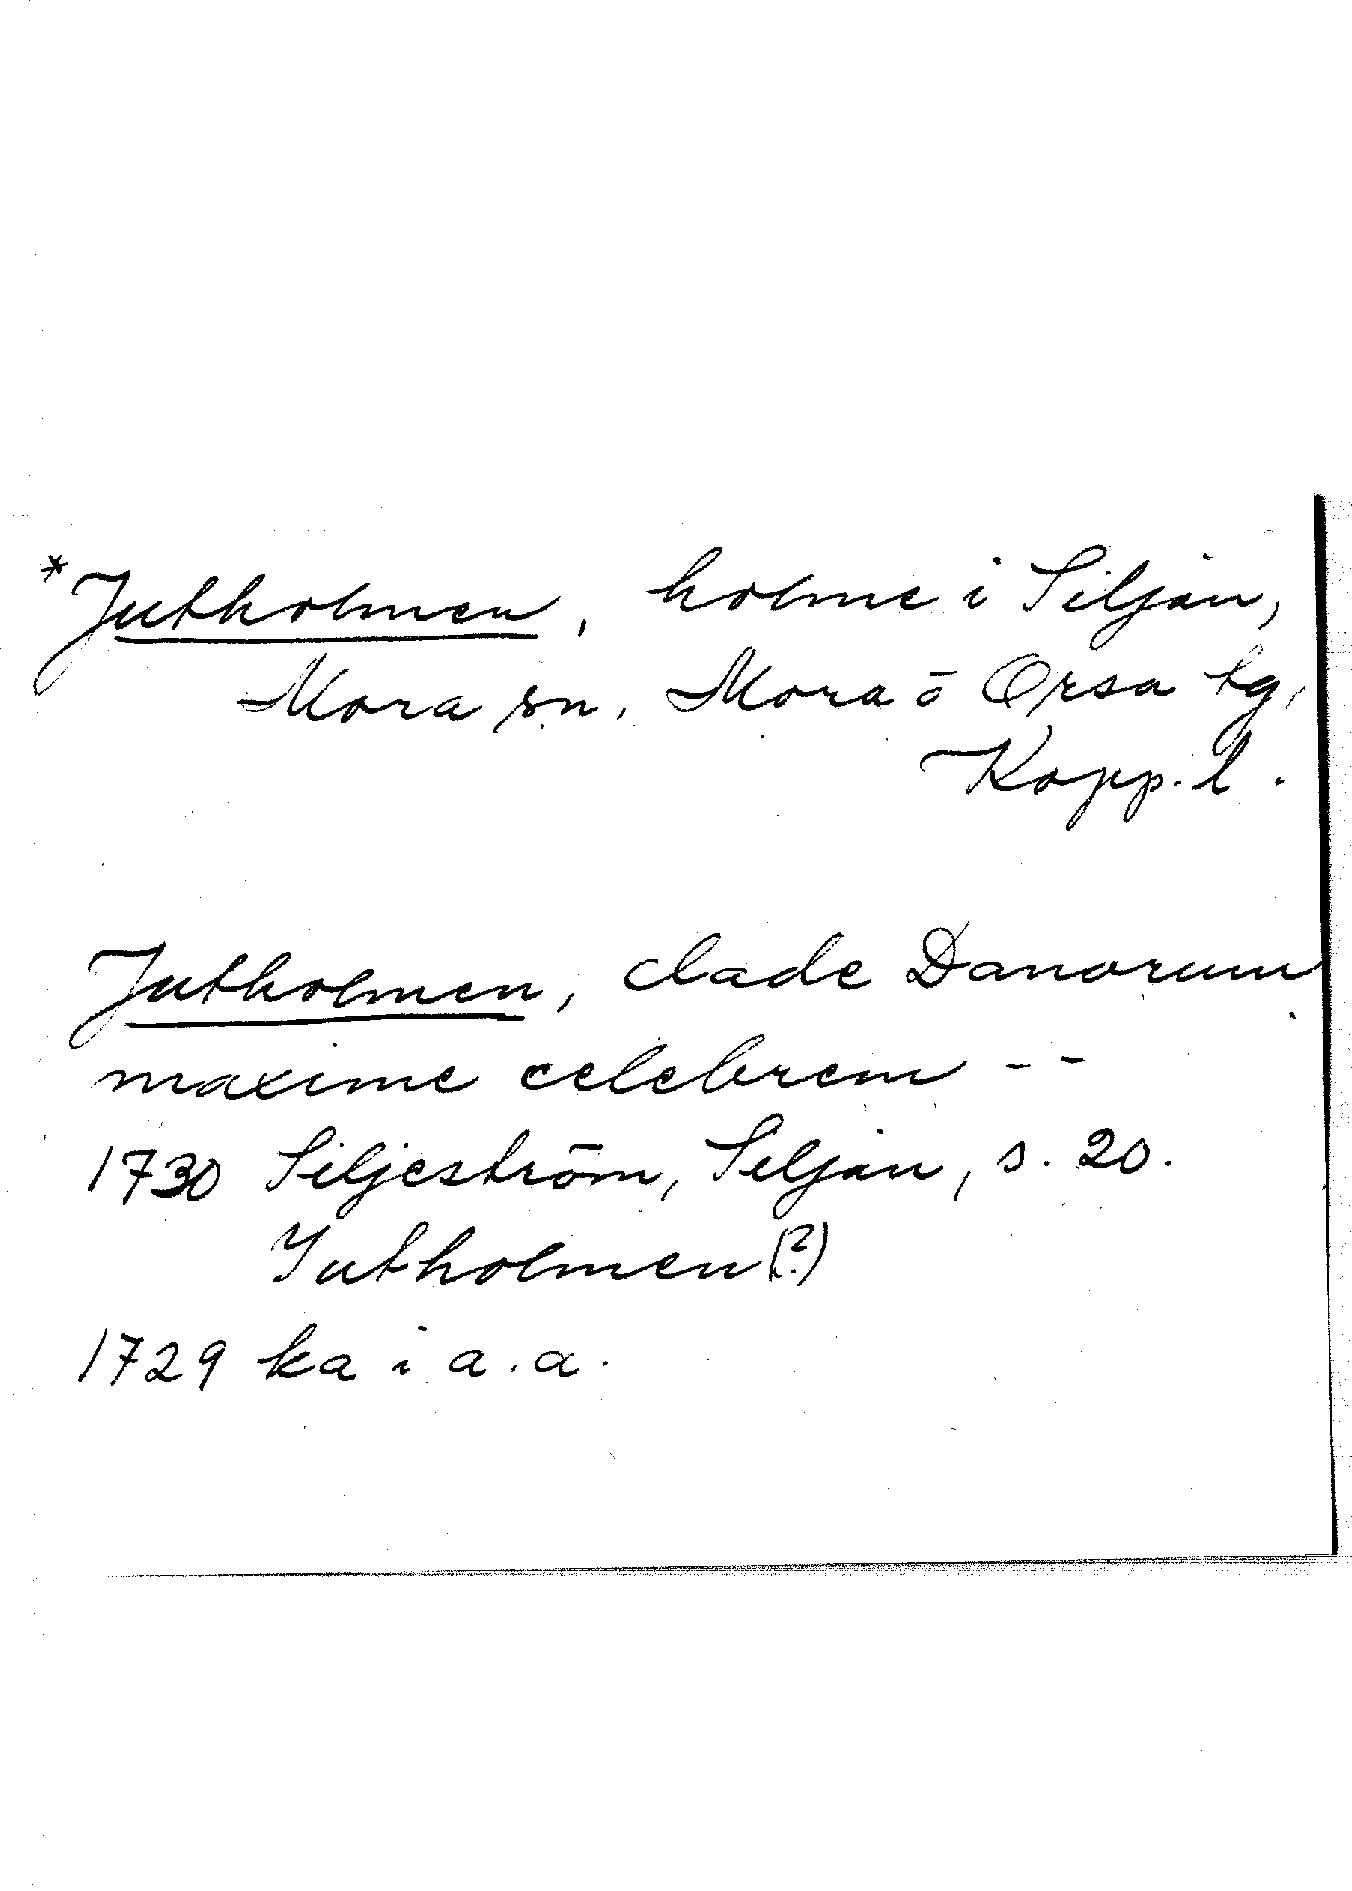 *Jutholmen, holme i Siljan,
Mora sn, Mora o Orsa tg,
Kopp. l.
Jutholmen, clade Danorum
maxime celebrem --
1730 Siljeström, Siljan, s. 20.
Jutholmen (?)
1729 ka i a.a.